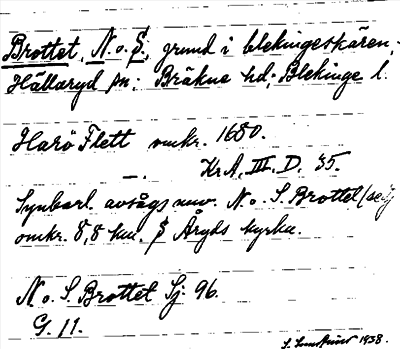 Brottet, N. o. S., grund i blekingeskären,
Hällaryd sn; Bräkne hd; Blekinge l.
Harö Flett omkr. 1680.
Kr A. III. D. 35.
Synbarl. avsågs nuv. N. o. S. Brottet (se
omkr. 8,8 km. S Åryds kyrka.
N o. S. Brottet Sj. 96.
G. 11.
1938.